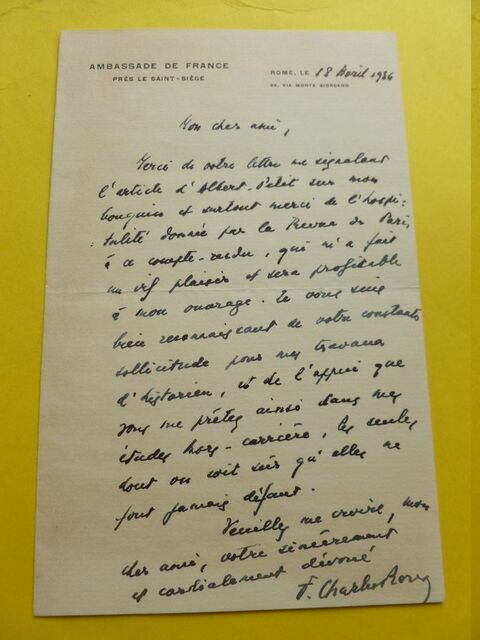 AMBASSADE DE FRANCE
PRÈS LE SAINT-SIÈGE
ROME, LE 18 Avril 1936
VIA MONTE GIORDANO
Mon cher ami,
Merci de votre lettre me signalant
l'article d'Albert-Petit sur mon
bouquin et surtout merci de l'hospi-
-talité donnée par la Revue de Paris
à ce compte-rendu, qui m'a fait
un vif plaisir et sera profitable
à mon ouvrage. Je vous suis
bien reconnaissant de votre constante
sollicitude pour mes travaux
d'historien, et de l'appui que
vous me prêtez ainsi dans mes
études hors-carrière, les seules
dont on soit sûr qu'elles ne
font jamais défaut.
Veuillez me croire, mon
cher ami, votre sincèrement
et cordialement dévoué
F. Charles-Roux